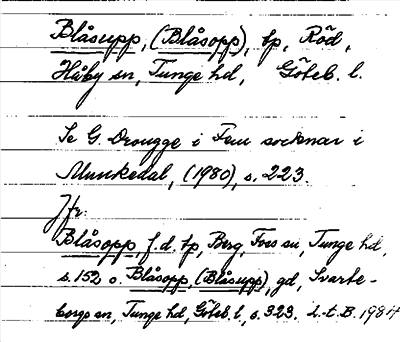 Blåsupp, (Blåsopp), tp, Röd,
Håby sn, Tunge hd, Göteb. l.
Se G. Drougge i Fem socknar i
Munkedal, (1980), s. 223.
Jfr:
Blåsopp, f.d. tp, Berg, Foss sn, Tunge hd,
s. 152 o. Blåsopp, (Blåsupp), gd, Svarte-
borgs sn, Tunge hd, Göteb. l, s. 323. L-t. B. 1984